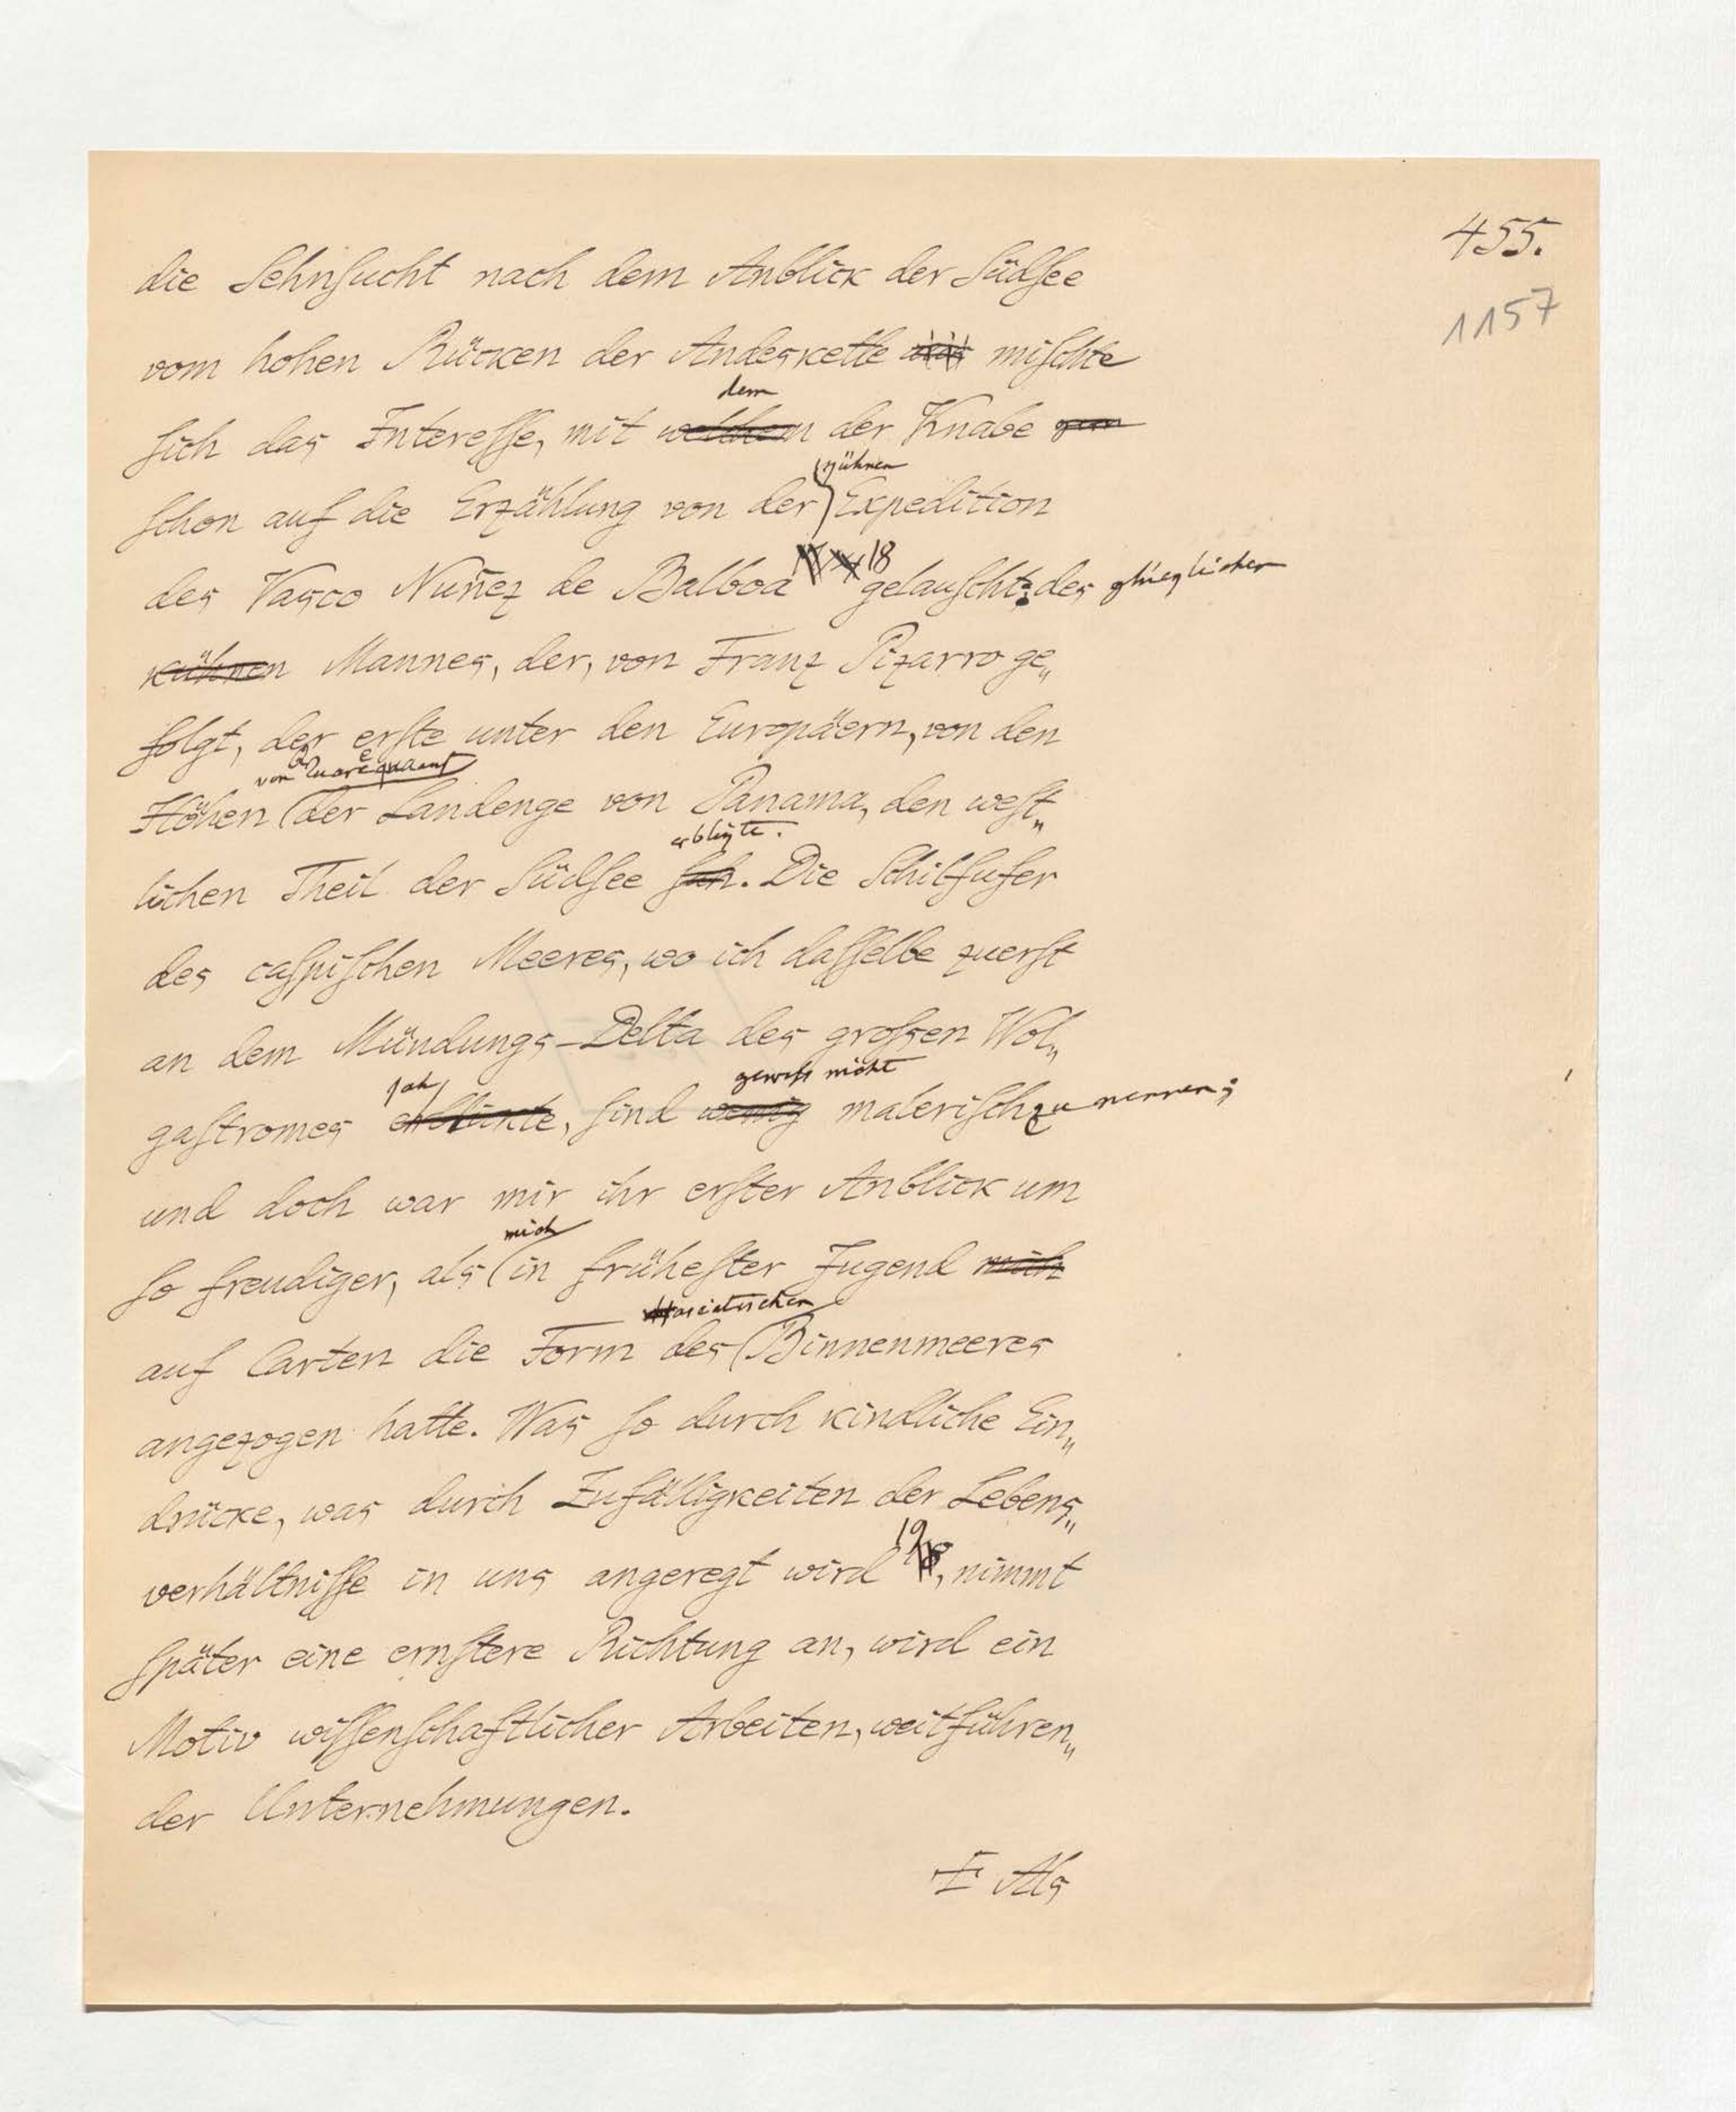 455.
1157
die Sehnsucht nach dem Anblick der Südsee
vom hohen Rücken der Andeskette mischte
dem
sich das Interesse, mit welchem der Knabe gern
kühnen
schon auf die Erzählung von der Expedition
18
des Vasco Nuñez de Balboa gelauscht: des glücklichen
kühnen Mannes, der, von Franz Pizarro ge„
folgt, der erste unter den Europäern, von den
von Quarequa auf
Höhen der Landenge von Panama, den west„
erblickte.
lichen Theil der Südsee sah. Die Schilfufer
des caspischen Meeres, wo ich dasselbe zuerst
an dem Mündungs-Delta des großen Wol„
sah, gewiß nicht
gastromes erblickte, sind wenig malerisch zu nennen;
und doch war mir ihr erster Anblick um
mich
so freudiger, als in frühester Jugend mich
asiatischen
auf Carten die Form des Binnenmeeres
angezogen hatte. Was so durch kindliche Ein„
drücke, was durch Zufälligkeiten der Lebens„
19
verhältnisse in uns angeregt wird, nimmt
später eine ernstere Richtung an, wird ein
Motiv wissenschaftlicher Arbeiten, weitführen„
der Unternehmungen.
I Als